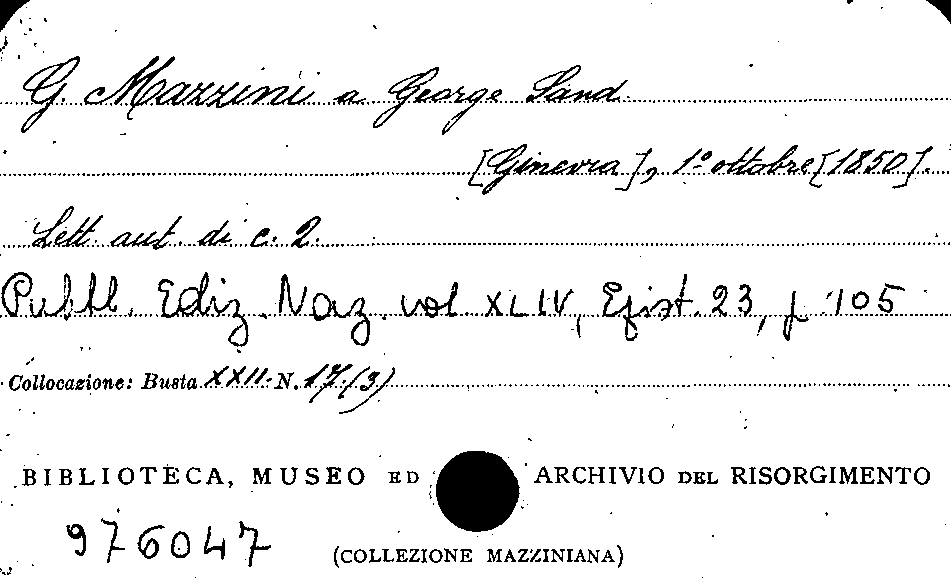 G. Mazzini a George Sand
[Ginevra], 1° ottobre [1850].
Lett. aut. di c. 2.
Pubbl. Ediz. Naz. vol XLIV, Epist. 23, p. 105
Collocazione: Busta XXII. N. 17.(3)
BIBLIOTECA, MUSEO ED ARCHIVIO DEL RISORGIMENTO
976047
(COLLEZIONE MAZZINIANA)